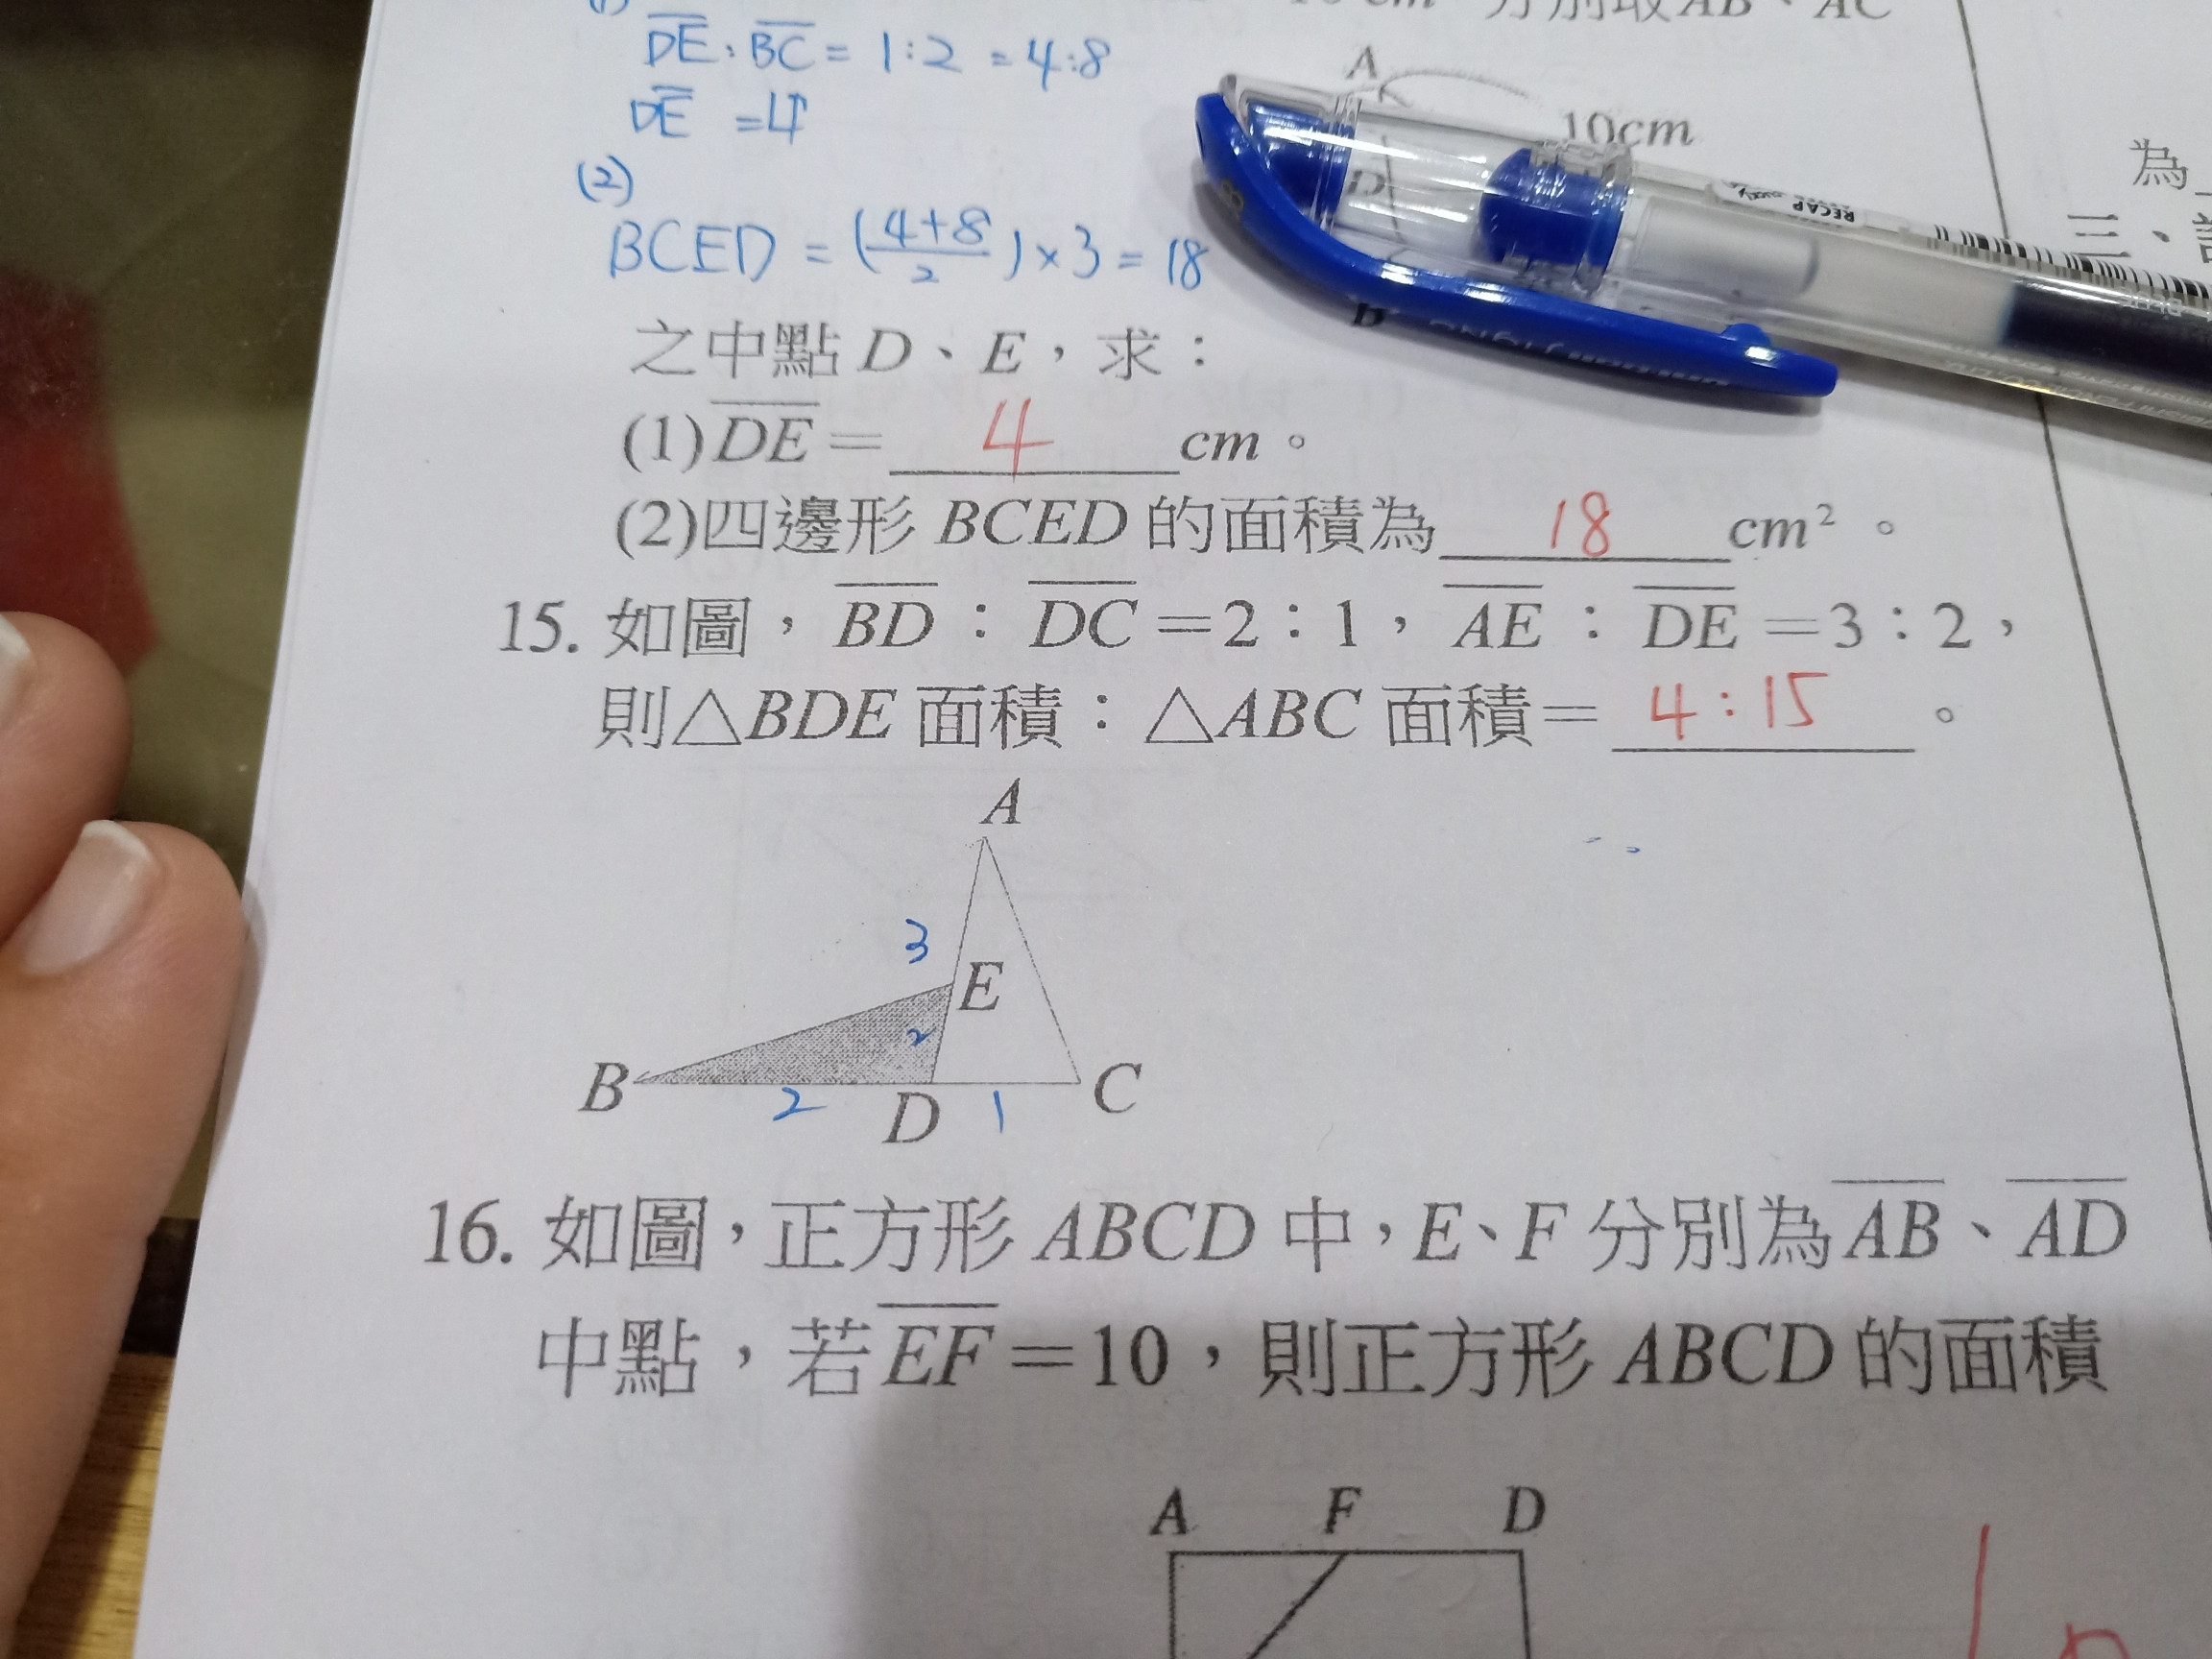 (1)
10 cm 分別取 AB、AC
DE : BC = 1:2 = 4:8
DE = 4
(2)
BCED = (4+8/2) × 3 = 18
A
10cm
D
B
之中點 D、E，求：
(1) DE = 4 cm。
(2)四邊形 BCED 的面積為 18 cm²。
15. 如圖，BD：DC＝2：1，AE：DE＝3：2，
則△BDE 面積：△ABC 面積＝ 4:15 。
A
3
E
2
B
2
D
1
C
16. 如圖，正方形 ABCD 中，E、F 分別為 AB、AD
中點，若 EF＝10，則正方形 ABCD 的面積
A F D
為
三、
RECAP